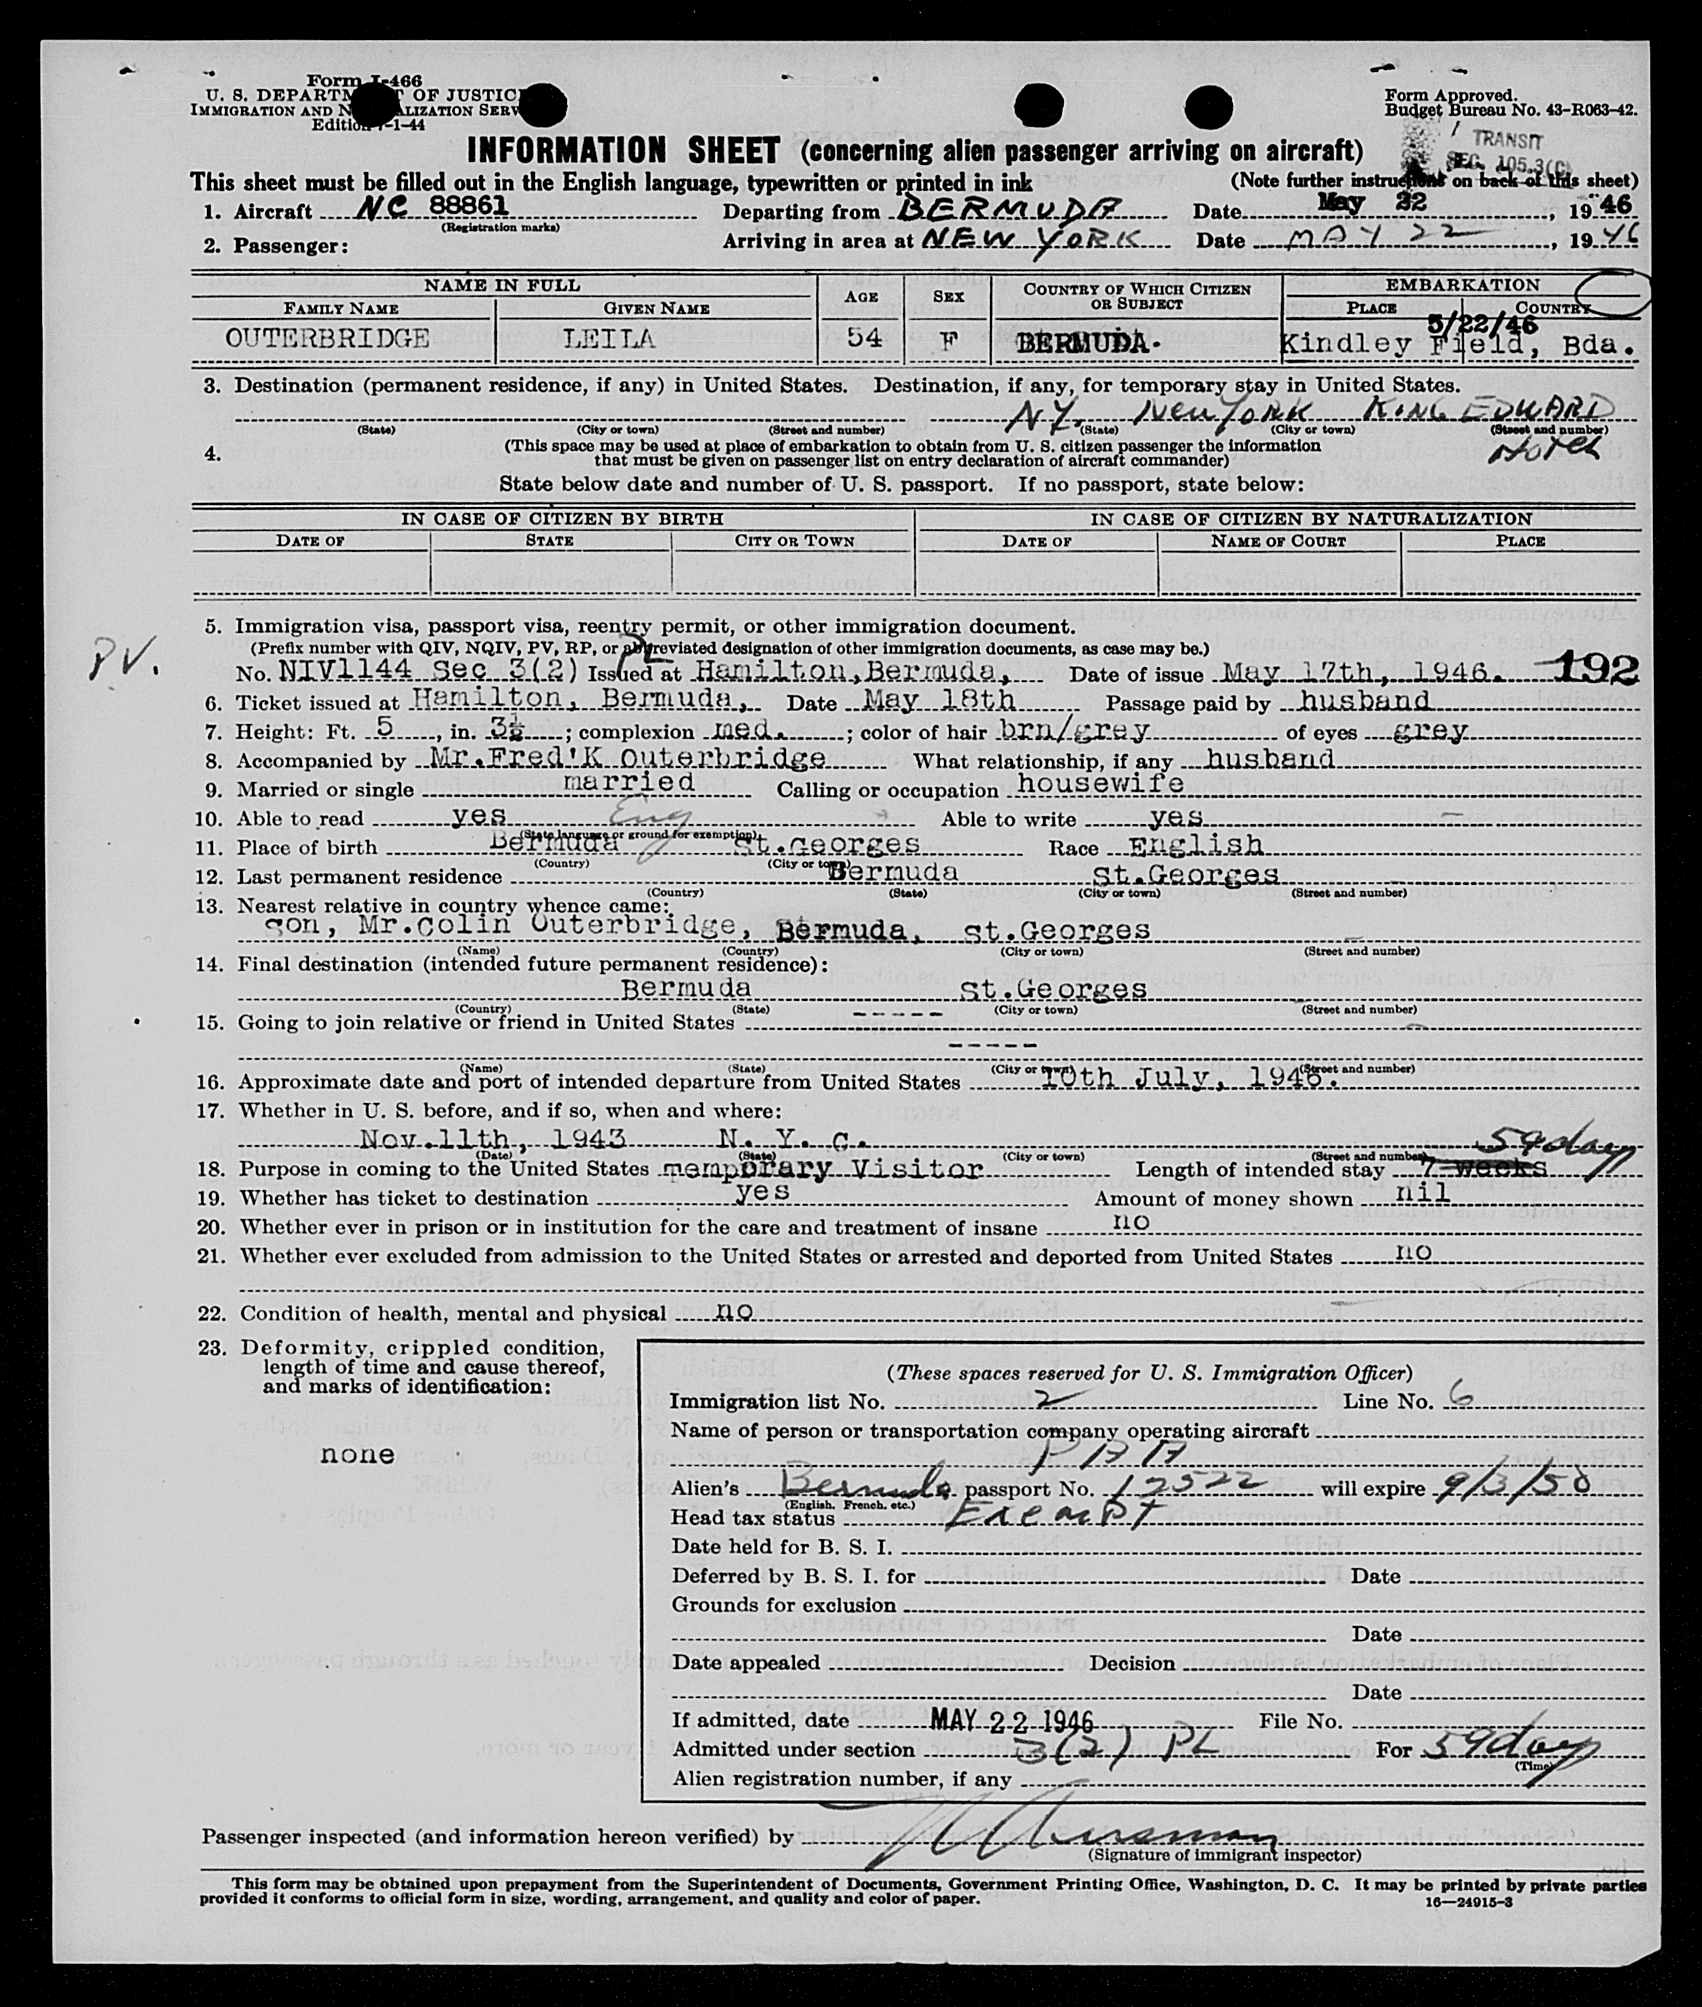 Form I-466
U. S. DEPARTMENT OF JUSTICE
IMMIGRATION AND NATURALIZATION SERV
Edition 7-1-44
Form Approved.
Budget Bureau No. 43-R063-42.
TRANSIT
SEC. 105.3(C)
INFORMATION SHEET (concerning alien passenger arriving on aircraft)
This sheet must be filled out in the English language, typewritten or printed in ink (Note further instructions on back of this sheet)
1. Aircraft NC 88861 Departing from BERMUDA Date May 22, 1946
(Registration marks)
2. Passenger: Arriving in area at NEW YORK Date MAY 22, 1946
NAME IN FULL AGE SEX COUNTRY OF WHICH CITIZEN OR SUBJECT EMBARKATION
FAMILY NAME GIVEN NAME PLACE COUNTRY
5/22/46
OUTERBRIDGE LEILA 54 F BERMUDA. Kindley Field, Bda.
3. Destination (permanent residence, if any) in United States. Destination, if any, for temporary stay in United States.
NY. New York KING EDWARD
(State) (City or town) (Street and number) (State) (City or town) (Street and number)
Hotel
4. (This space may be used at place of embarkation to obtain from U. S. citizen passenger the information
that must be given on passenger list on entry declaration of aircraft commander)
State below date and number of U. S. passport. If no passport, state below:
IN CASE OF CITIZEN BY BIRTH IN CASE OF CITIZEN BY NATURALIZATION
DATE OF STATE CITY OR TOWN DATE OF NAME OF COURT PLACE
5. Immigration visa, passport visa, reentry permit, or other immigration document.
PV.
(Prefix number with QIV, NQIV, PV, RP, or abbreviated designation of other immigration documents, as case may be.)
PL
No. NIV1144 Sec 3(2) Issued at Hamilton, Bermuda, Date of issue May 17th, 1946. 192
6. Ticket issued at Hamilton, Bermuda, Date May 18th Passage paid by husband
7. Height: Ft. 5, in. 3½; complexion med.; color of hair brn/grey of eyes grey
8. Accompanied by Mr.Fred'K Outerbridge What relationship, if any husband
9. Married or single married Calling or occupation housewife
10. Able to read yes Eng Able to write yes
(State language or ground for exemption)
11. Place of birth Bermuda St.Georges Race English
(Country) (City or town)
12. Last permanent residence Bermuda St.Georges
(Country) (State) (City or town) (Street and number)
13. Nearest relative in country whence came:
son, Mr.Colin Outerbridge, Bermuda, St.Georges
(Name) (Country) (City or town) (Street and number)
14. Final destination (intended future permanent residence):
Bermuda St.Georges
(Country) (State) (City or town) (Street and number)
15. Going to join relative or friend in United States -----
-----
(Name) (State) (City or town) (Street and number)
16. Approximate date and port of intended departure from United States 10th July, 1946.
17. Whether in U. S. before, and if so, when and where:
Nov.11th, 1943 N. Y. C.
(Date) (State) (City or town) (Street and number)
59 days
18. Purpose in coming to the United States Temporary Visitor Length of intended stay 7 weeks
19. Whether has ticket to destination yes Amount of money shown nil
20. Whether ever in prison or in institution for the care and treatment of insane no
21. Whether ever excluded from admission to the United States or arrested and deported from United States no
22. Condition of health, mental and physical no
23. Deformity, crippled condition,
length of time and cause thereof,
and marks of identification:
none
(These spaces reserved for U. S. Immigration Officer)
Immigration list No. 2 Line No. 6
Name of person or transportation company operating aircraft
Alien's Bermuda passport No. 12522 will expire 9/3/50
(English, French, etc.)
Head tax status Exempt
Date held for B. S. I.
Deferred by B. S. I. for Date
Grounds for exclusion
Date
Date appealed Decision
Date
If admitted, date MAY 22 1946 File No.
Admitted under section 3(2) PL For 59 days
(Time)
Alien registration number, if any
Passenger inspected (and information hereon verified) by
(Signature of immigrant inspector)
This form may be obtained upon prepayment from the Superintendent of Documents, Government Printing Office, Washington, D. C. It may be printed by private parties
provided it conforms to official form in size, wording, arrangement, and quality and color of paper.
16—24915-3